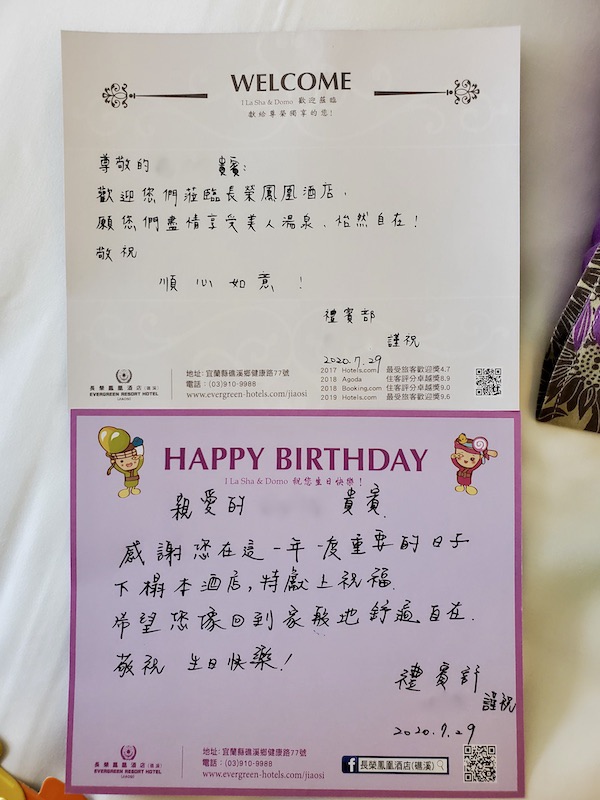 WELCOME
I La Sha & Domo 歡迎蒞臨
獻給尊榮獨享的您!
尊敬的 貴賓:
歡迎您們蒞臨長榮鳳凰酒店、
願您們盡情享受美人湯泉、怡然自在!
敬祝
順心如意!
禮賓部
謹祝
2020.7.29
長榮鳳凰酒店(礁溪)
EVERGREEN RESORT HOTEL
(JIAOSI)
地址: 宜蘭縣礁溪鄉健康路77號
電話 : (03)910-9988
www.evergreen-hotels.com/jiaosi
2017 Hotels.com 最受旅客歡迎獎4.7
2018 Agoda 住客評分卓越獎8.9
2018 Booking.com 住客評分卓越獎9.0
2019 Hotels.com 最受旅客歡迎獎9.6
HAPPY BIRTHDAY
I La Sha & Domo 祝您生日快樂!
親愛的 貴賓
感謝您在這一年一度重要的日子
下榻本酒店,特獻上祝福.
希望您像回到家般地舒適自在.
敬祝 生日快樂!
禮賓部
謹祝
2020.7.29
長榮鳳凰酒店(礁溪)
EVERGREEN RESORT HOTEL
(JIAOSI)
地址: 宜蘭縣礁溪鄉健康路77號
電話 : (03)910-9988
www.evergreen-hotels.com/jiaosi
長榮鳳凰酒店(礁溪)